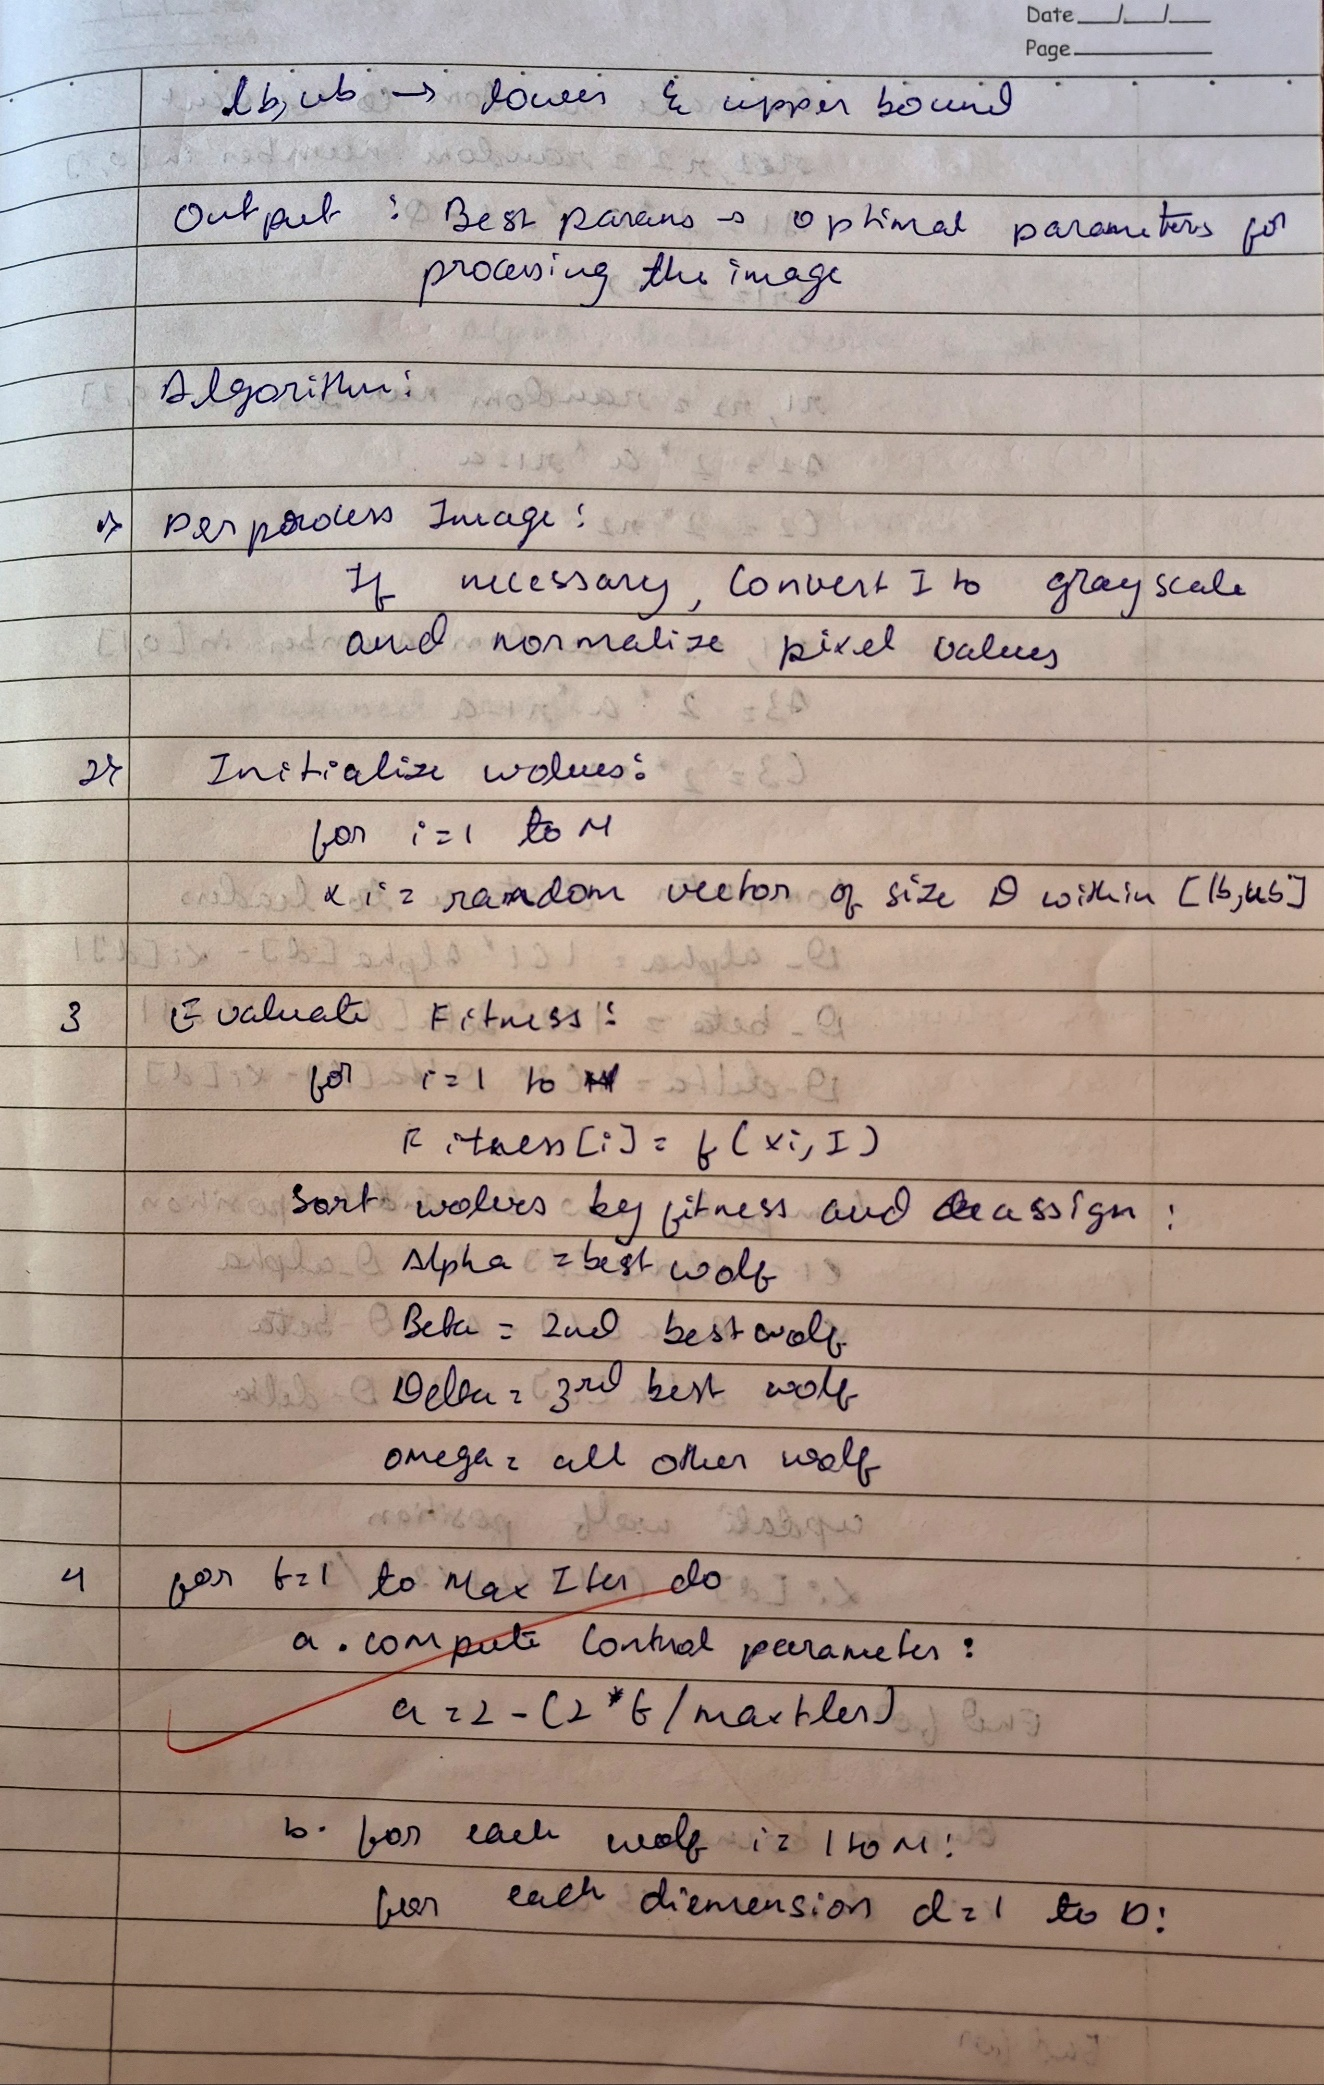 Date __/__/__
Page
lb, ub → lower & upper bound
Output : Best params → optimal parameters for
processing the image
Algorithm:
1> Perprocess Image:
If necessary, Convert I to grayscale
and normalize pixel values
2> Initialize wolves:
for i=1 to N
xi = random vector of size D within [lb,ub]
3 Evaluate Fitness:
for i=1 to N
Fitness[i] = f(xi, I)
Sort wolves by fitness and assign:
Alpha = best wolf
Beta = 2nd best wolf
Delta = 3rd best wolf
omega = all other wolf
4 for t=1 to Max Iter do
a. compute Control parameter:
a = 2 - (2*t/maxIter)
b. for each wolf i = 1 to N:
for each diemension d=1 to D: